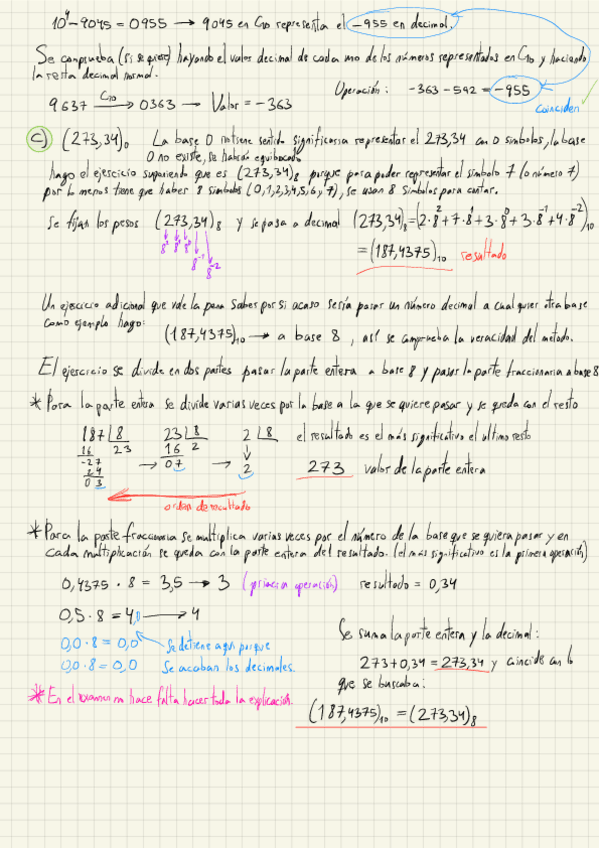 10⁴-9045 = 0955 → 9045 en C₁₀ representa el -955 en decimal.
Se comprueba (si se quiere) hayando el valor decimal de cada uno de los números representados en C₁₀ y haciendo
la resta decimal normal.
Operación: -363-592 = -955
9637 C₁₀→ 0363 → Valor = -363
Coinciden ✓
C) (273,34)₀ La base 0 no tiene sentido significaria representar el 273,34 con 0 simbolos, la base
0 no existe, se habrán equibocado
hago el ejercicio suponiendo que es (273,34)₈ porque para poder representar el simbolo 7 (o número 7)
por lo menos tiene que haber 8 simbolos (0,1,2,3,4,5,6 y 7), se usan 8 Simbolos para contar.
Se fijan los pesos (273,34)₈ y se pasa a decimal (273,34)₈=(2·8²+7·8¹+3·8⁰+3·8⁻¹+4·8⁻²)₁₀
8² 8¹ 8⁰ 8⁻¹ 8⁻²
=(187,4375)₁₀ resultado
Un ejercicio adicional que vale la pena saber por si acaso sería pasar un número decimal a cualquier otra base
como ejemplo hago:
(187,4375)₁₀ → a base 8, así se comprueba la veracidad del metodo.
El ejercicio se divide en dos partes pasar la parte entera a base 8 y pasar la parte fraccionaria a base 8
* Para la parte entera se divide varias veces por la base a la que se quiere pasar y se queda con el resto
187 | 8 23 | 8 2 | 8 el resultado es el más significativo el ultimo resto
16 23 16 2
-27 → 07 → 2 273 valor de la parte entera
24
03
orden de resultado
* Para la parte fraccionaria se multiplica varias veces por el número de la base que se quiera pasar y en
cada multiplicación se queda con la parte entera del resultado. (el más significativo es la primera operación)
0,4375 · 8 = 3,5 → 3 (primera operación) resultado = 0,34
0,5 · 8 = 4,0 → 4
Se suma la parte entera y la decimal:
0,0·8 = 0,0 Se detiene aqui porque
273+0,34 = 273,34 y coincide con lo
0,0·8 = 0,0 Se acaban los decimales.
que se buscaba:
* En el examen no hace falta hacer toda la explicación.
(187,4375)₁₀ = (273,34)₈